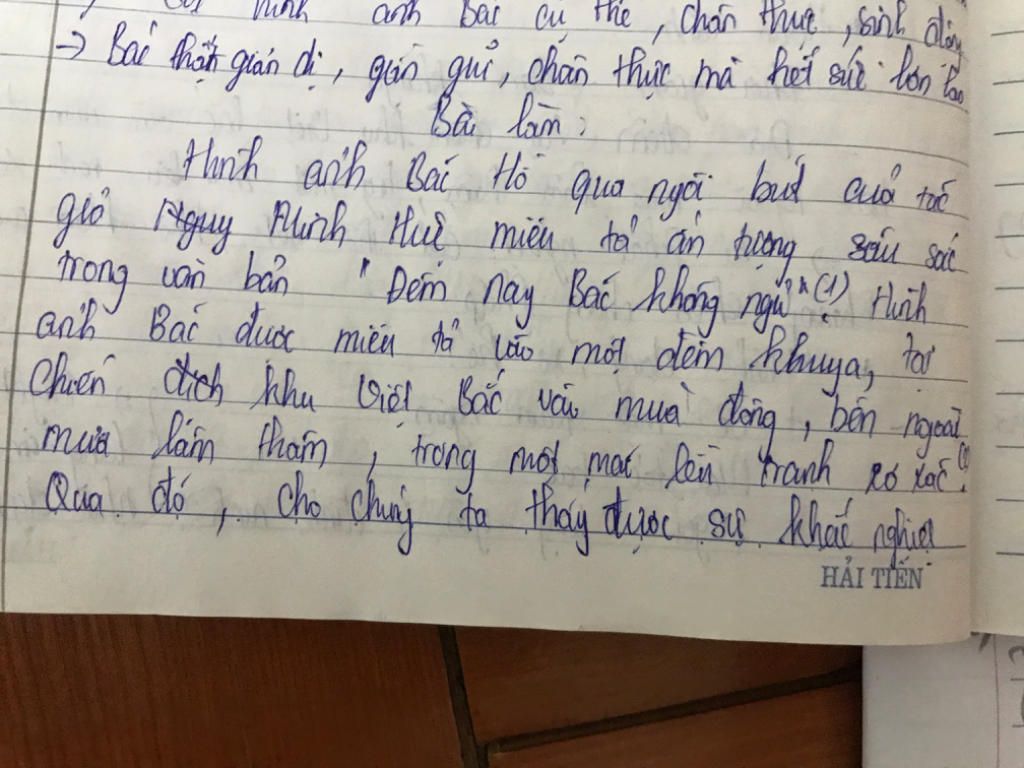 hình ảnh Bác cụ thể, chân thực, sinh động
→ Bác thật giản dị, gần gũi, chân thực mà hết sức lớn lao
Bài làm:
Hình ảnh Bác Hồ qua ngòi bút củả tác
giả Nguy Minh Huệ miêu tả ấn tượng sâu sắc
trong văn bản "Đêm nay Bác không ngủ" (1). Hình
ảnh Bác được miêu tả vào một đêm khuya, tại
chiến dịch khu Việt Bắc vào mùa đông, bên ngoài
mưa lâm thâm, trong một mác lều tranh xơ xác.
Qua đó, cho chúng ta thấy được sự khắc nghiệt
HẢI TIẾN